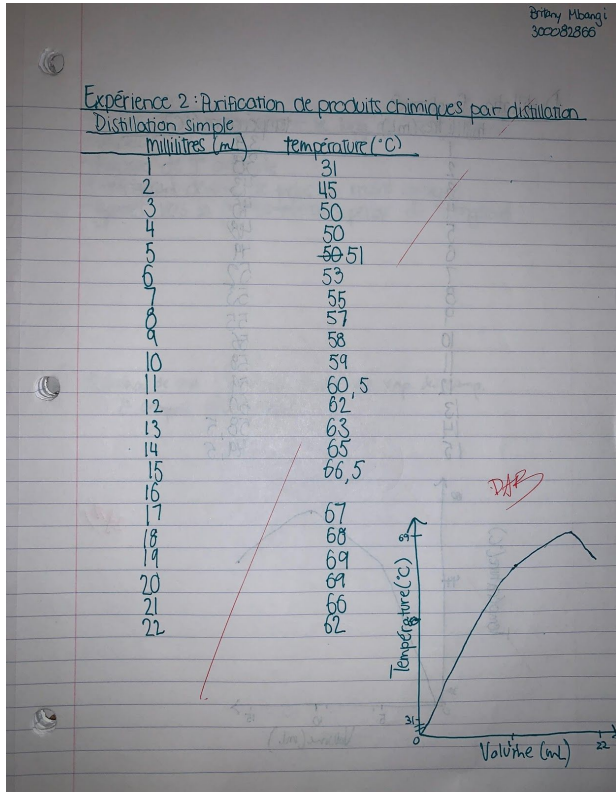 Britany Mbangi
300082866
Expérience 2 : Purification de produits chimiques par distillation
Distillation simple
millilitres (mL) température (°C)
1 31
2 45
3 50
4 50
5 50 51
6 53
7 55
8 57
9 58
10 59
11 60,5
12 62
13 63
14 65
15 66,5
16
17 67
18 68
19 69
20 69
21 66
22 62
DAB
69
Température (°C)
31
0
Volume (mL)
22